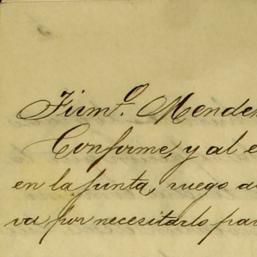 Firmº. Mende
Conforme, y al e
en la Junta, ruego a
va por necesitarlo par